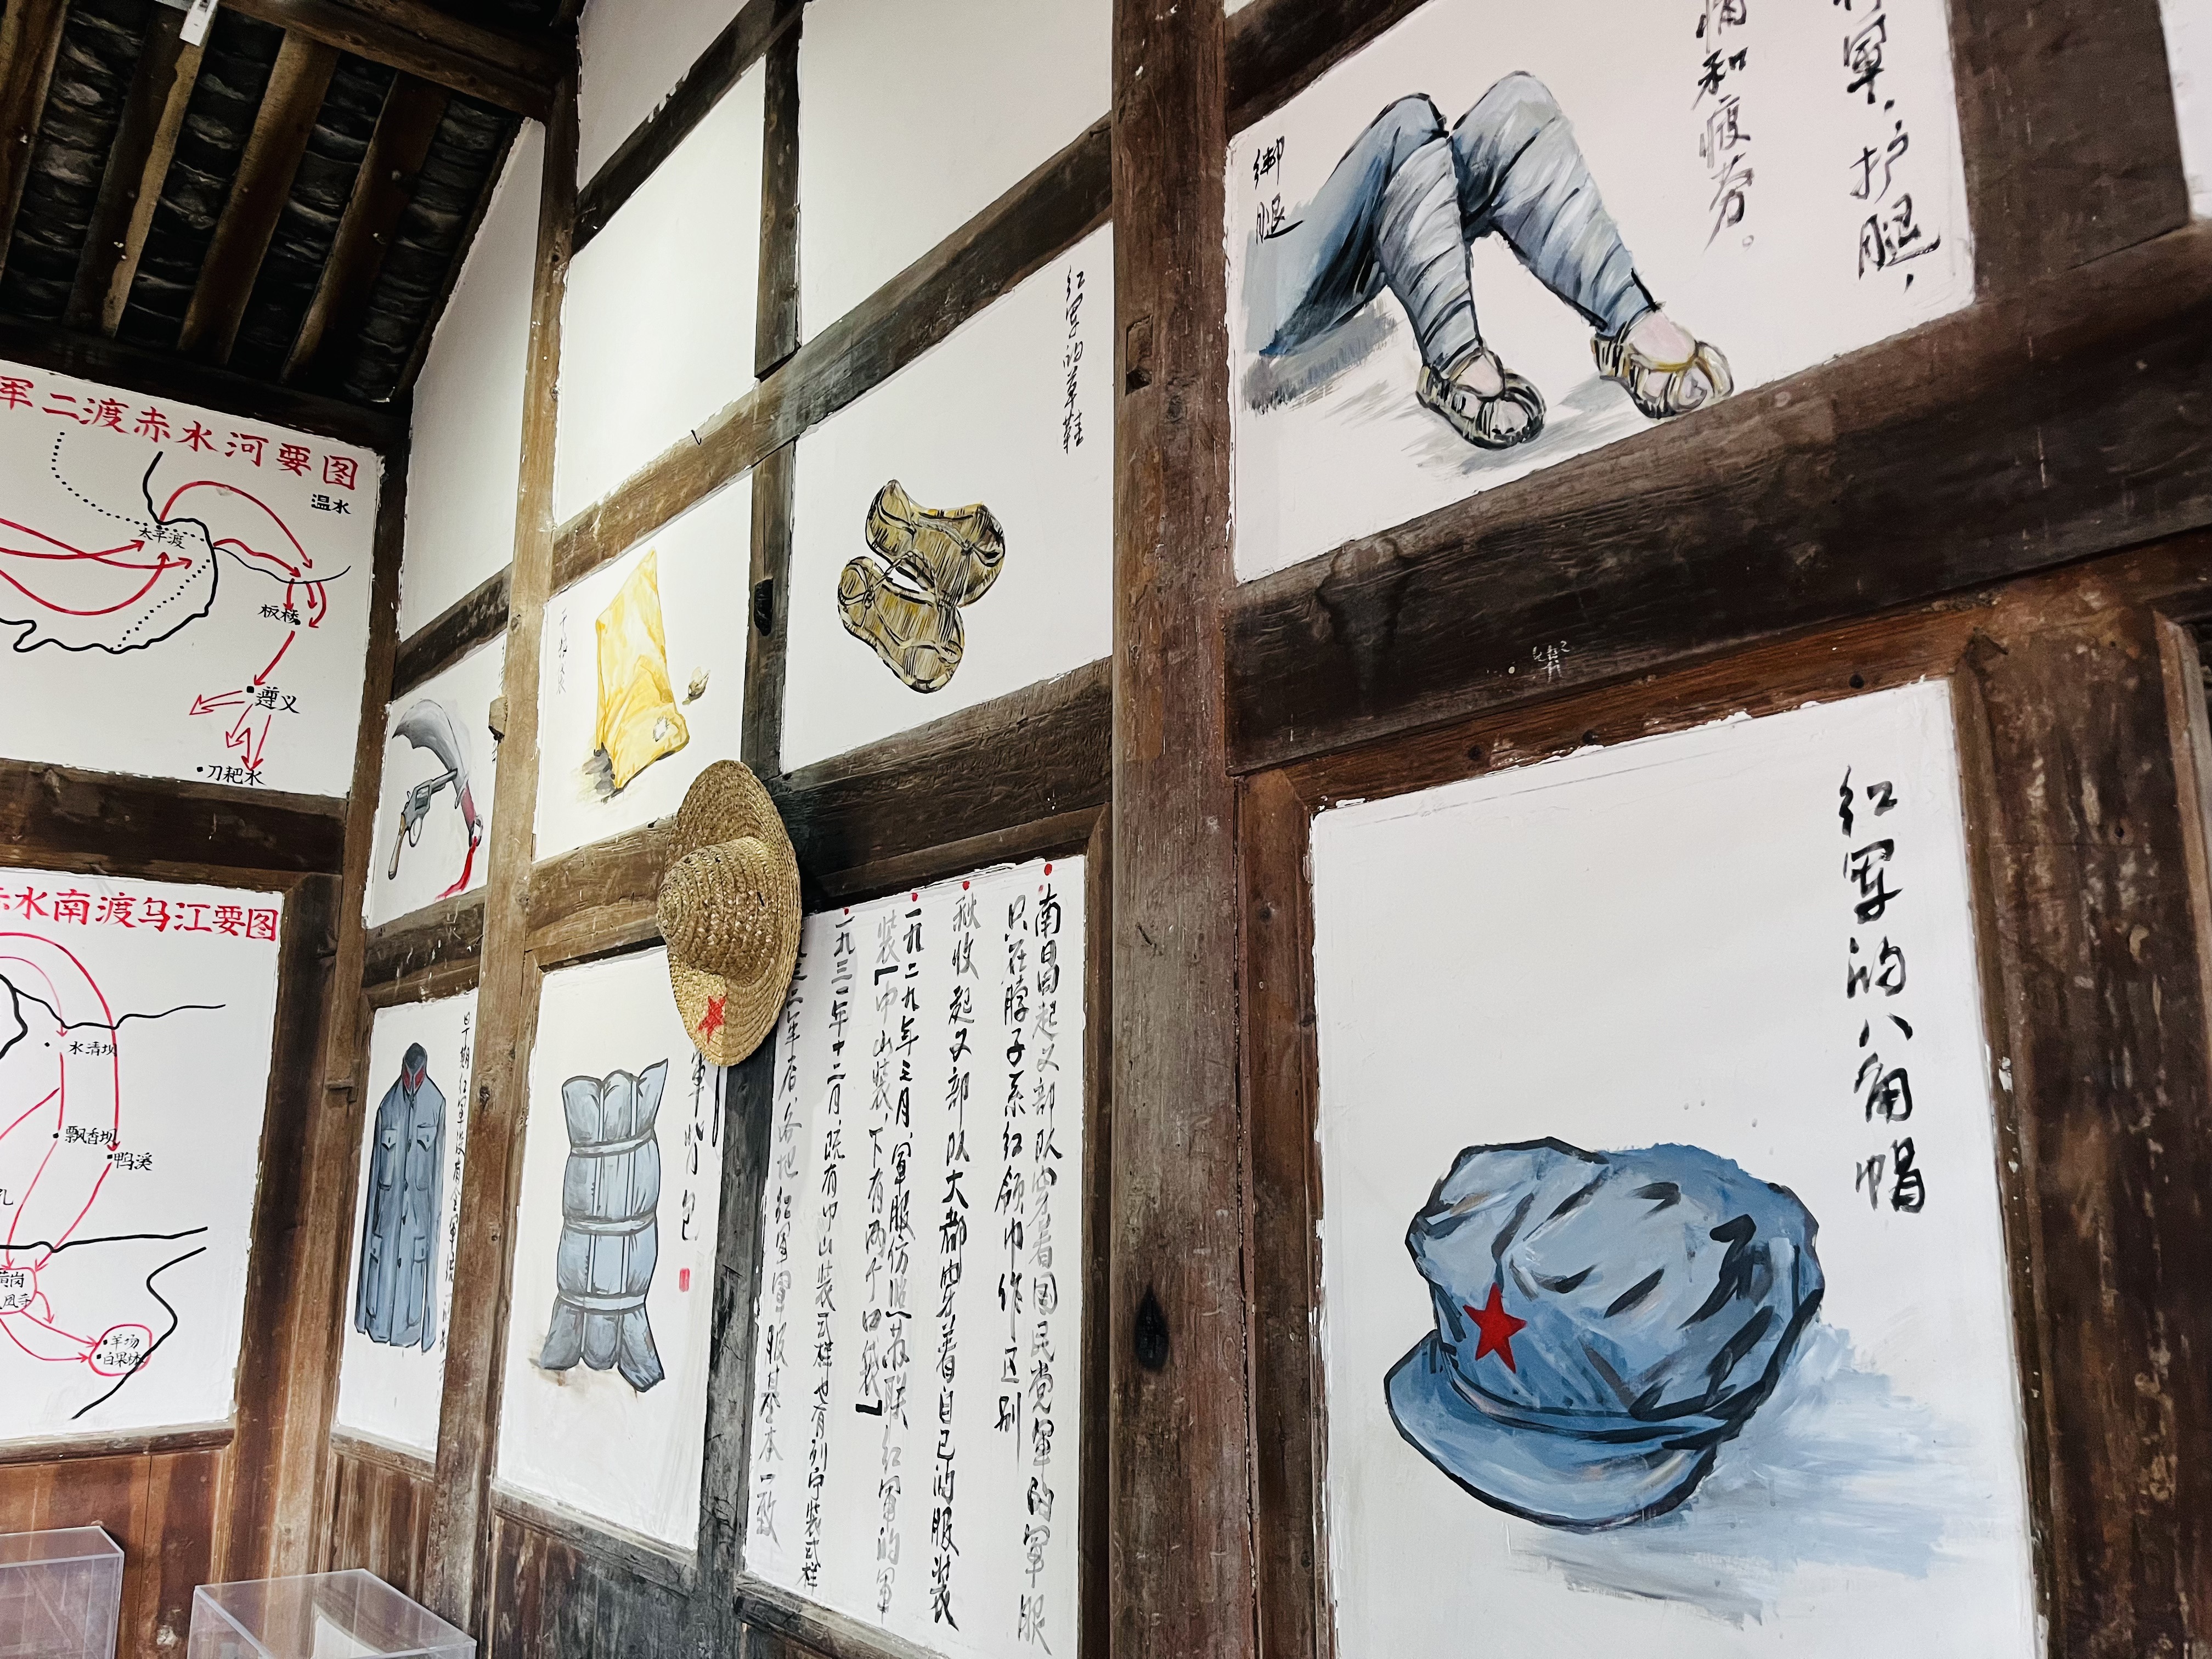 军二渡赤水河要图
温水
太平渡
板桥
遵义
刀耙水
水南渡乌江要图
水清坝
飘香坝
鸭溪
孔
黄岗
羊场
白果坝
干粮袋
红军的草鞋
绑腿
行军，护腿，
情和疲劳。
早期红军没有全军统一
军人包
南昌起义部队穿着国民党军的军服
只在脖子系红领巾作区别
秋收起义部队大都穿着自己的服装
一九二九年三月，军服仿照苏联红军的军
装「中山装，下有两个口袋」
一九三一年十二月，既有中山装式样也有列宁装式样
二年后，各地红军军服基本一致
红军的八角帽